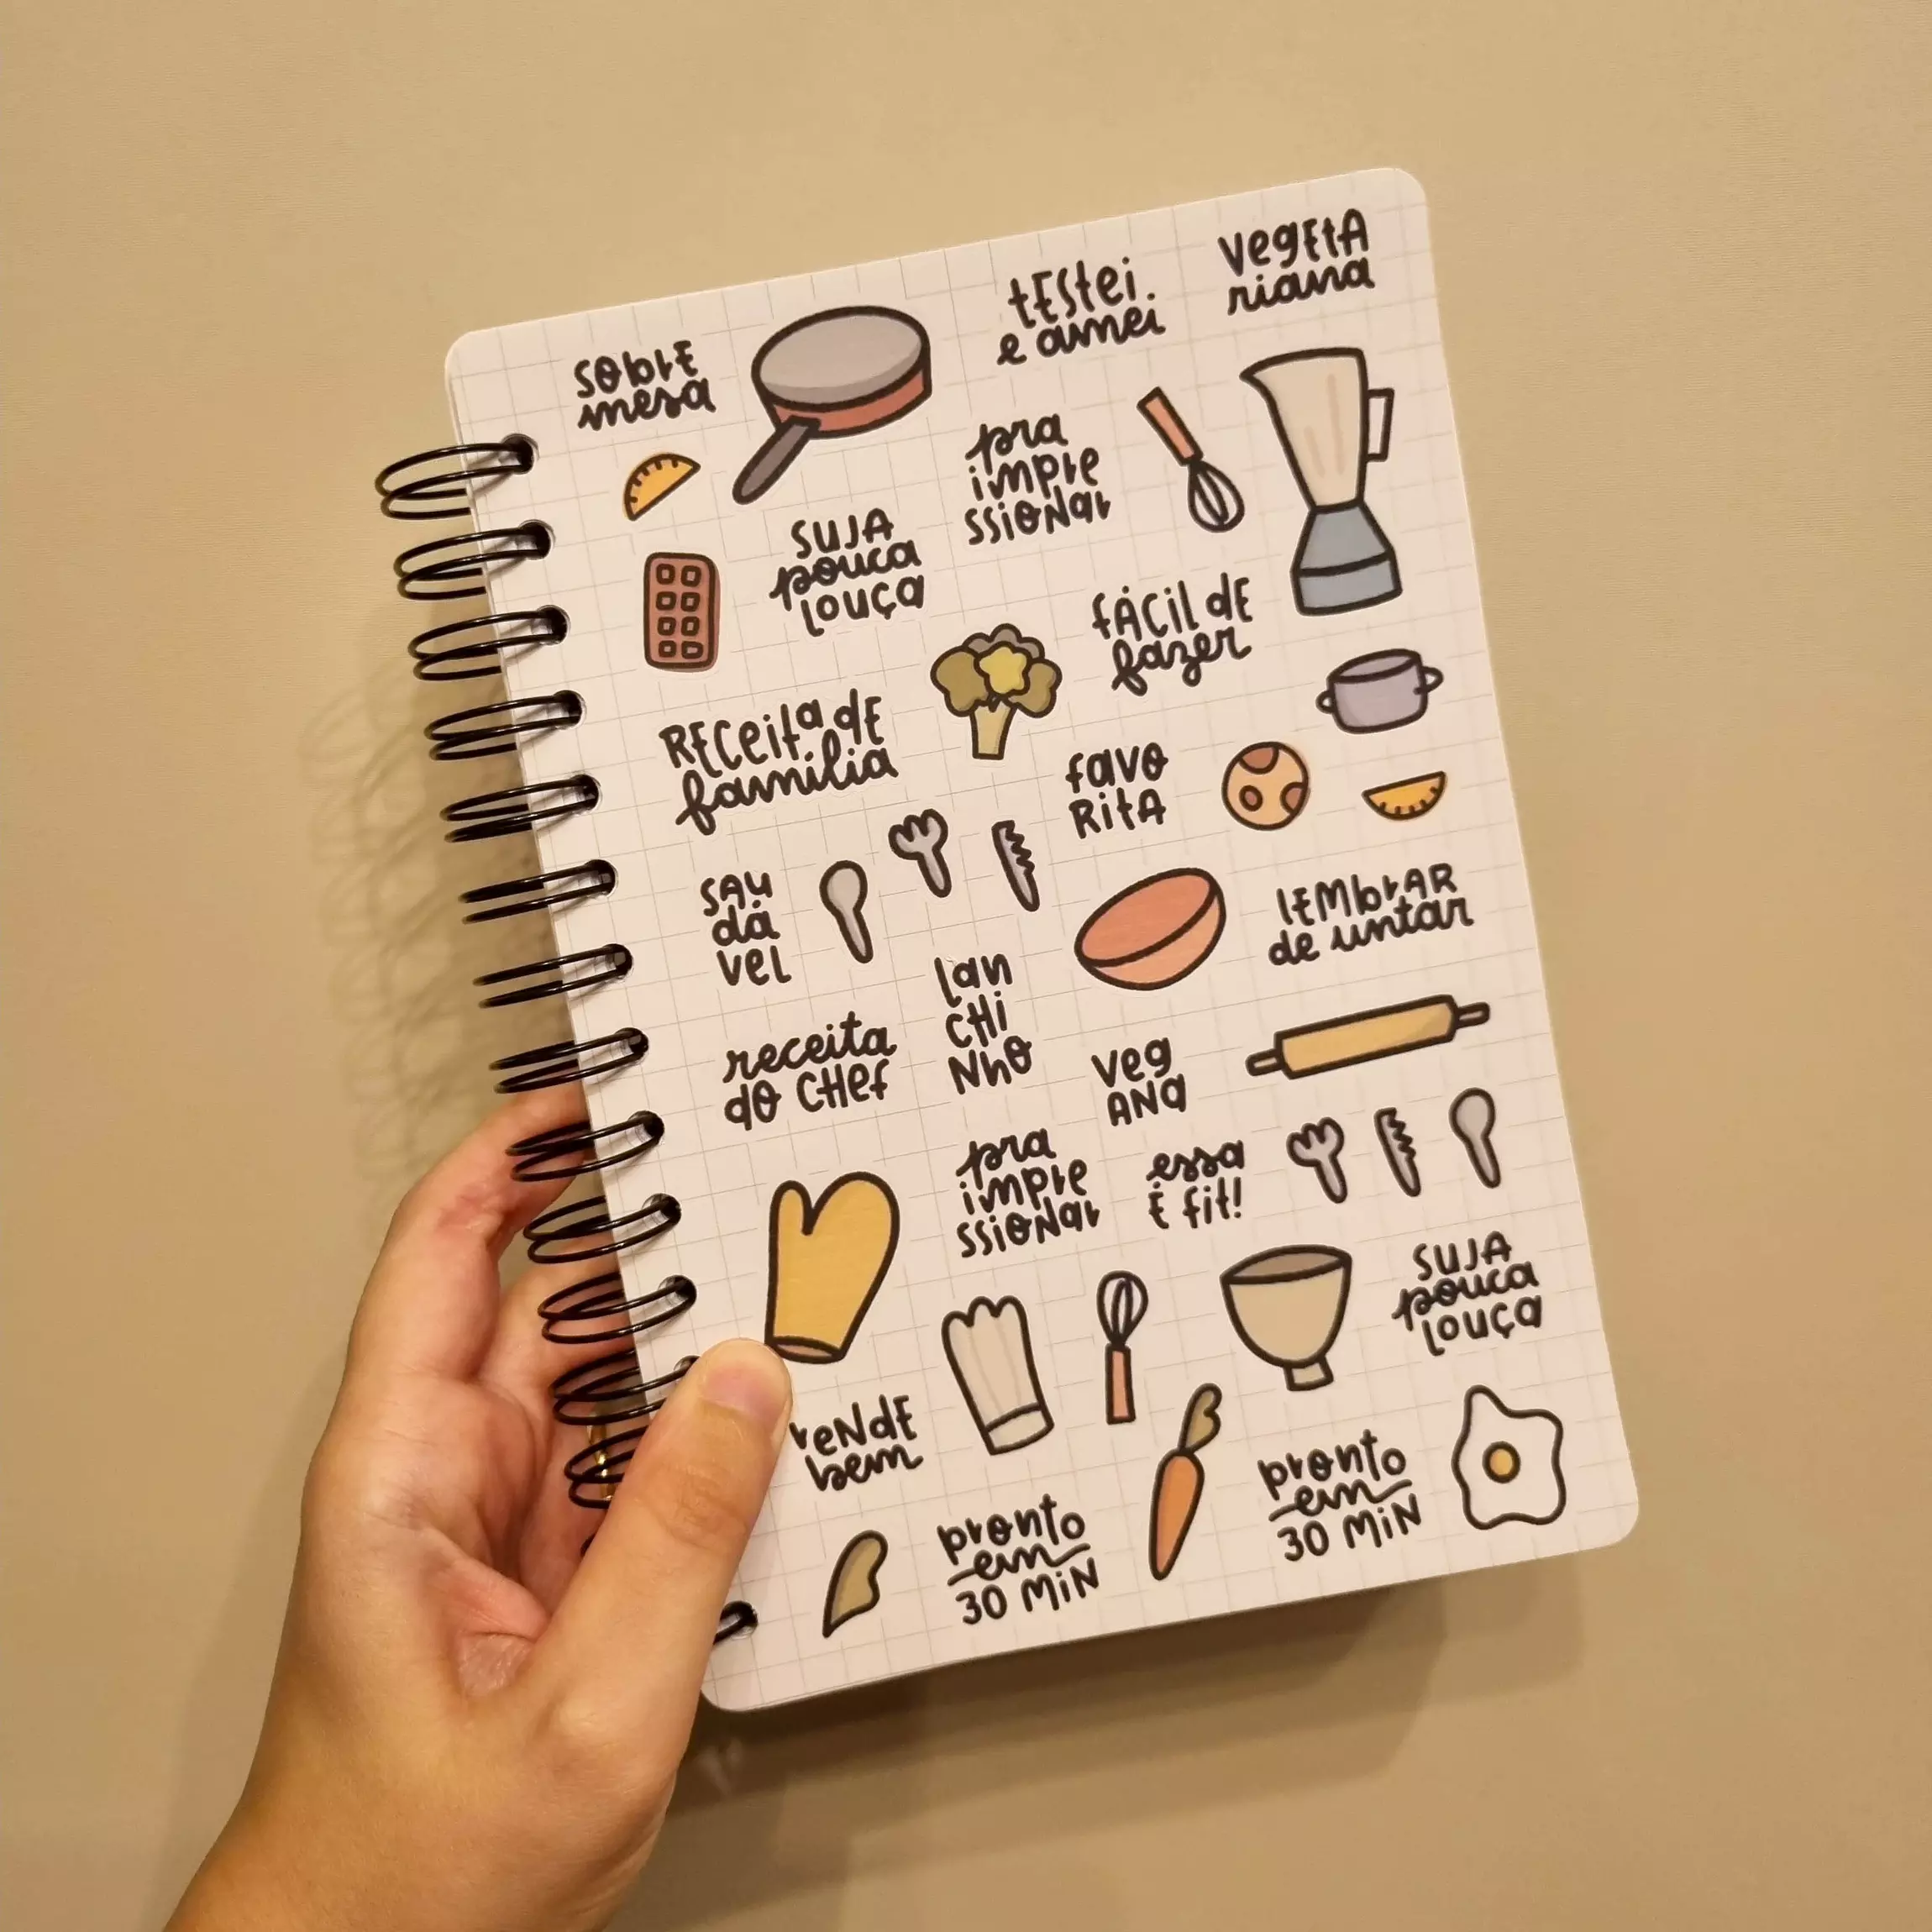 sobre
mesa
testei
e amei
vegeta
riana
pra
impre
ssionar
suja
pouca
louça
fácil de
fazer
receita de
família
favo
rita
sau
dá
vel
lembrar
de untar
lan
chi
nho
receita
do chef
veg
ana
pra
impre
ssionar
essa
é fit!
suja
pouca
louça
rende
bem
pronto
em
30 min
pronto
em
30 min